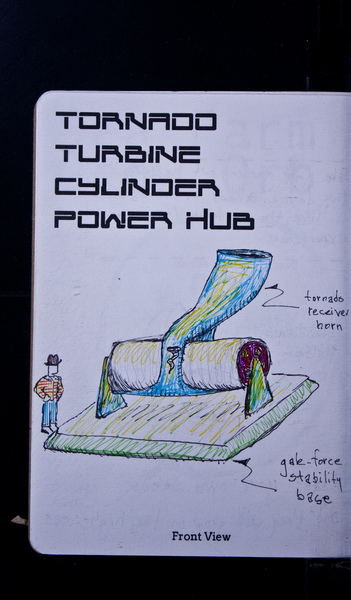 TORNADO
TURBINE
CYLINDER
POWER HUB
tornado
receiver
horn
gale-force
stability
base
Front View